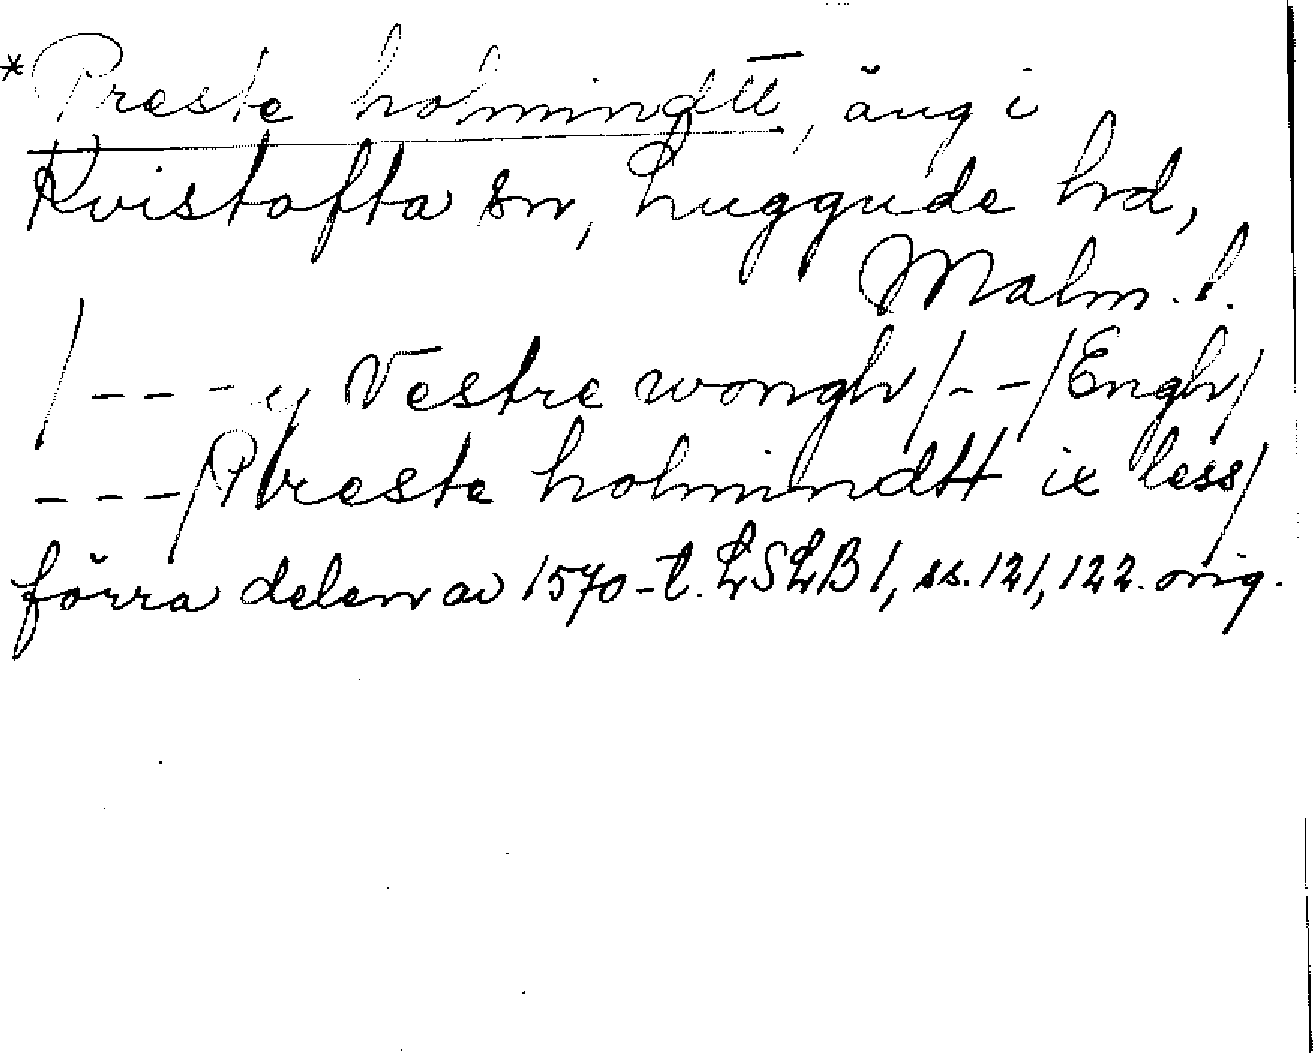 *Preste holmindtt, äng i
Kvistofta sn, Luggude hrd,
Malm. l.
/---y Vestre wongh/--/Engh/
---/Preste holmindtt ix less/
förra delen av 1570-t. LSLB 1, ss. 121, 122. orig.